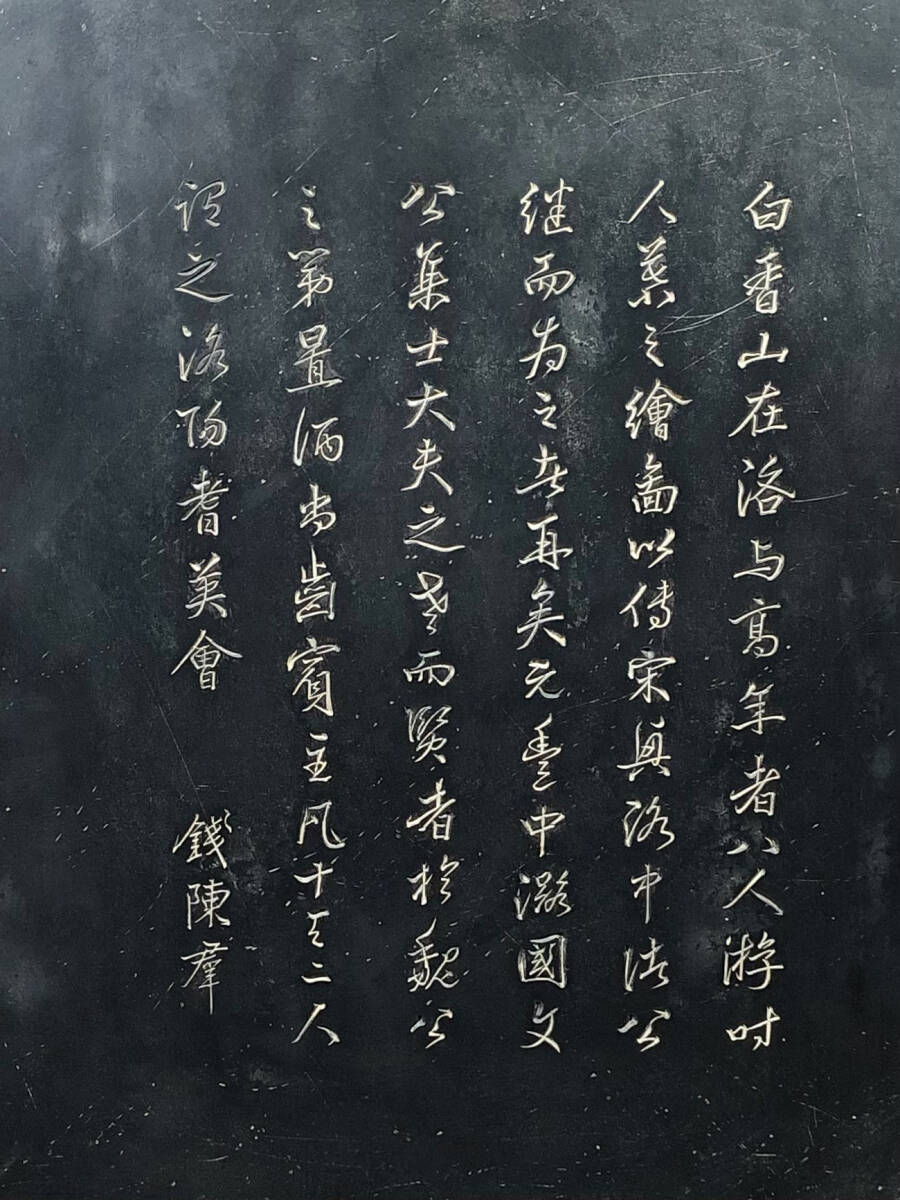 白香山在洛与高年者八人游时
人慕之繪圖以傳宋興洛中诸公
继而为之者再矣元豐中潞國文
公集士大夫之老而賢者於魏公
之第置酒尚齒賓主凡十有二人
謂之洛陽耆英會 錢陳羣